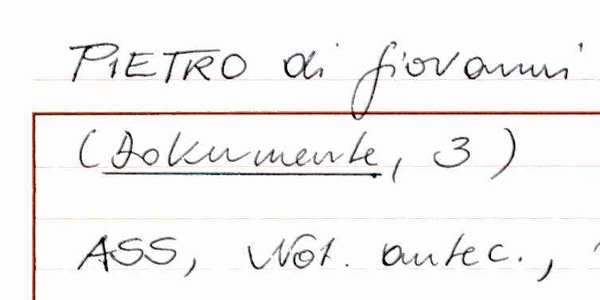 PIETRO di giovanni
(Dokumente, 3)
ASS, Not. antec.,